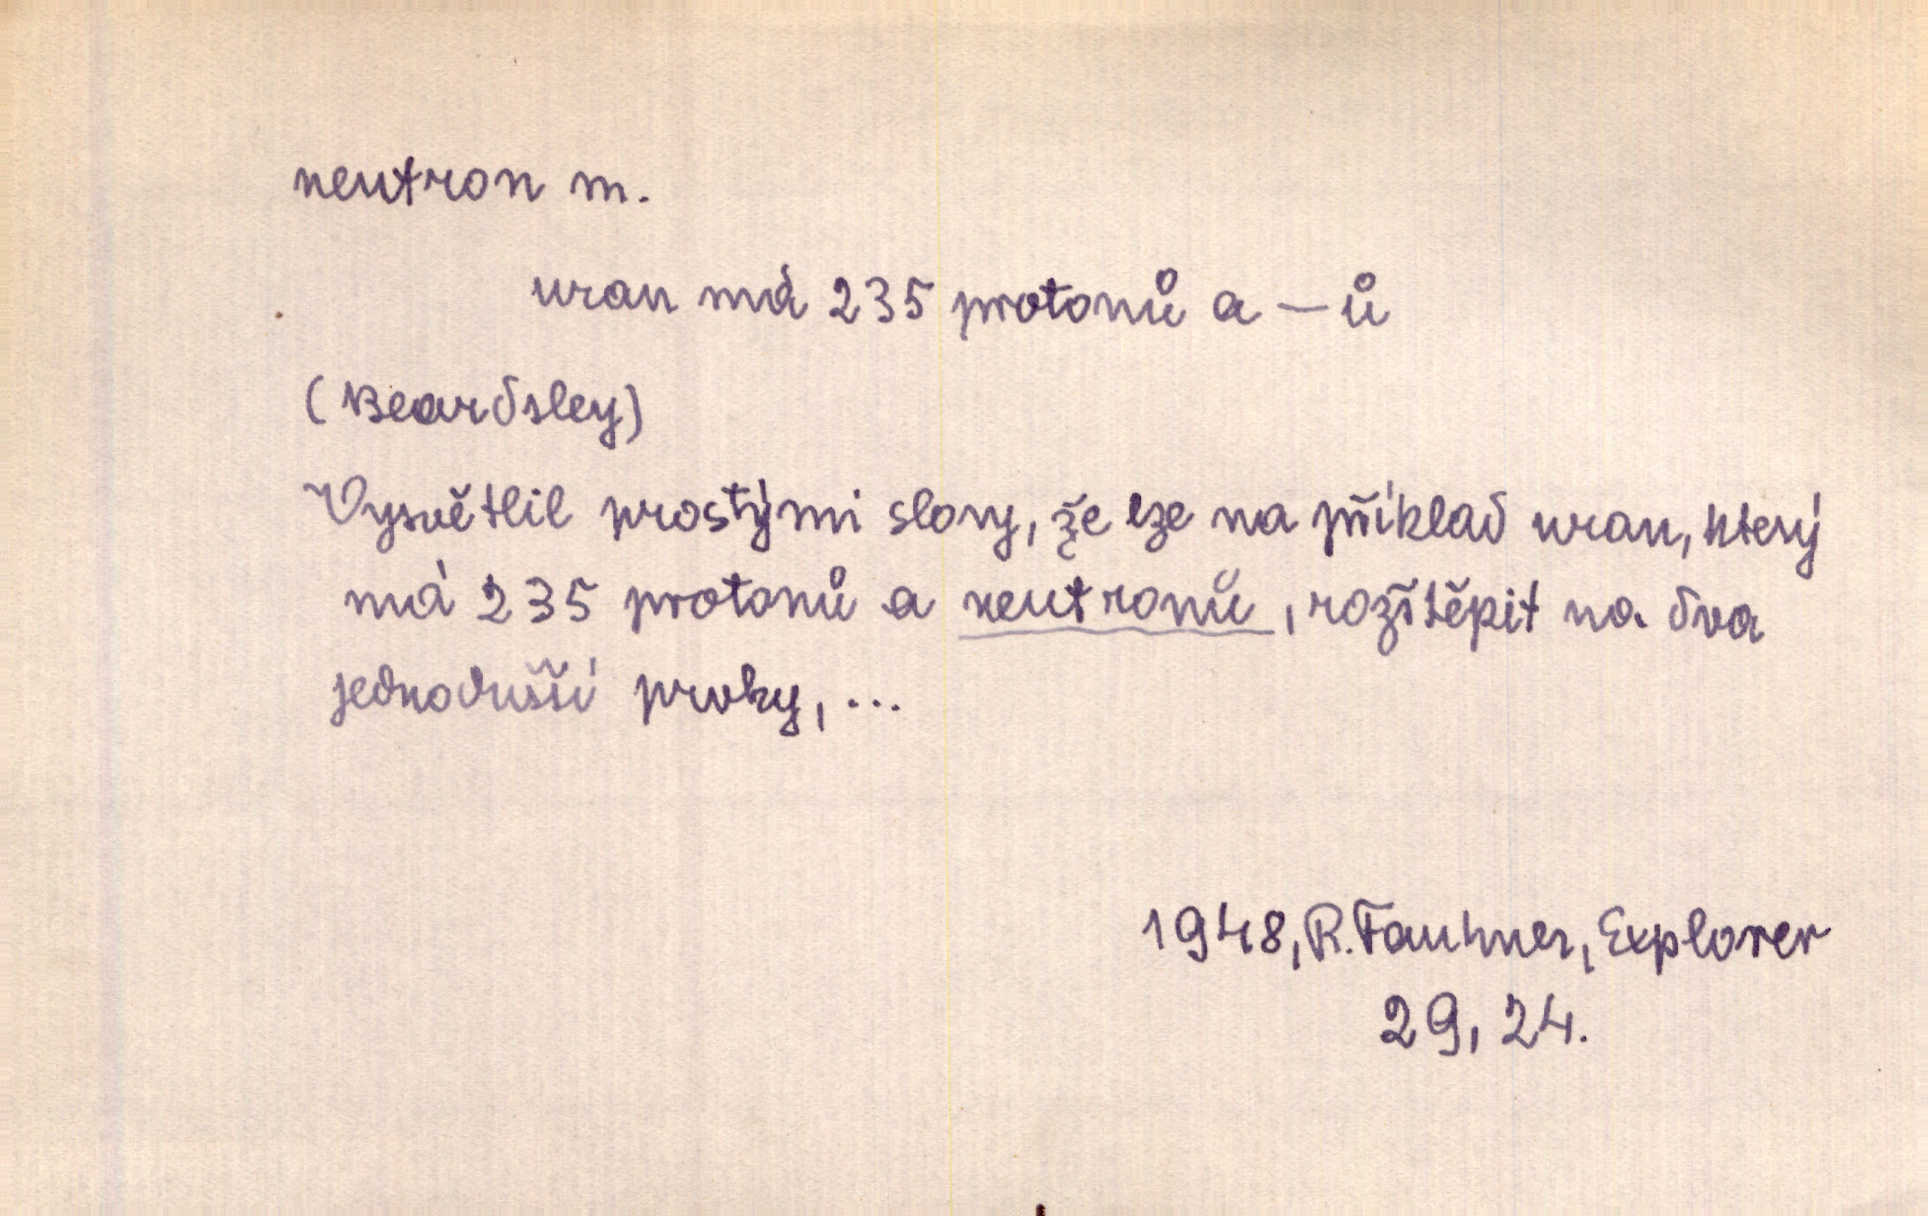 neutron m.
uran má 235 protonů a – ů
(Beardsley)
Vysvětlil prostými slovy, že lze na příklad uran, který
má 235 protonů a neutronů, rozštěpit na dva
jednodušší prvky, ...
1948, R. Faukner, Explorer
29, 24.